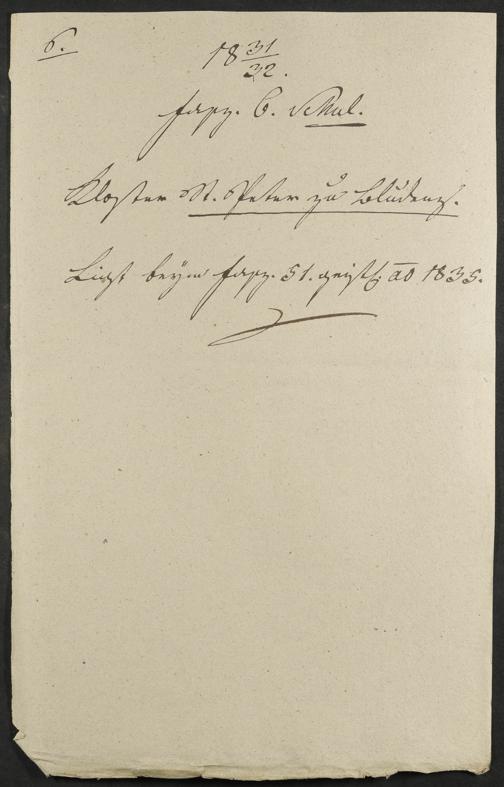 6.
18 31/32.
Fasz. 6. Schul.
Kloster St. Peter zu Bludenz.
Liegt beym Fasz. 51. geistl. ao 1835.